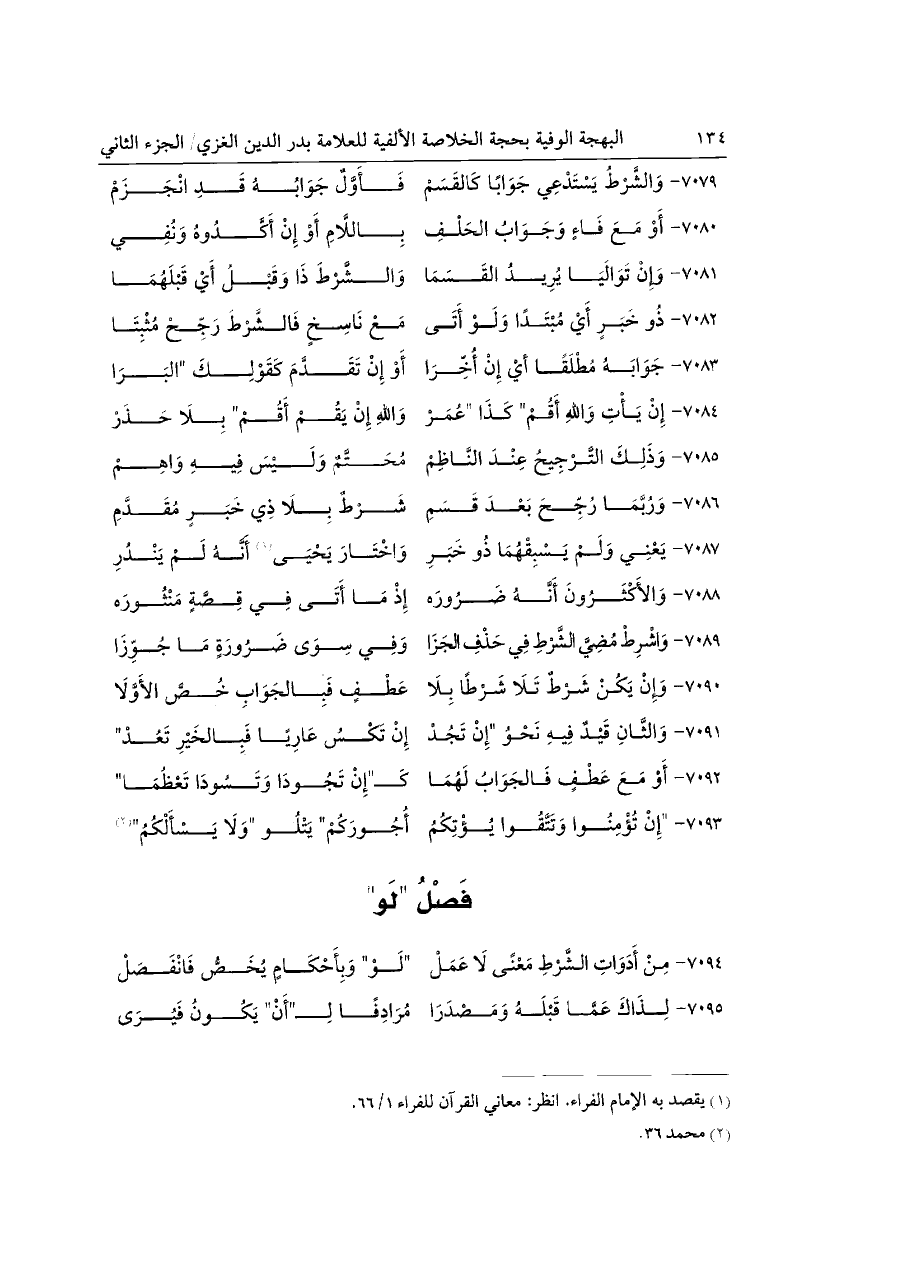 ١٣٤ البهجة الوفية بحجة الخلاصة الألفية للعلامة بدر الدين الغزي/ الجزء الثاني
٧٠٧٩- وَالشَّرْطُ يَسْتَدْعِي جَوَابًا كَالقَسَمْ فَأَوَّلٌ جَوَابُهُ قَدِ انْجَزَمْ
٧٠٨٠- أَوْ مَعَ فَاءٍ وَجَوَابُ الحَلْفِ بِاللَّامِ أَوْ إِنْ أَكَّدُوهُ وَنُفِي
٧٠٨١- وَإِنْ تَوَالَيَا يُرِيدُ القَسَمَا وَالشَّرْطَ ذَا وَقَبْلُ أَيْ قَبْلَهُمَا
٧٠٨٢- ذُو خَبَرٍ أَيْ مُبْتَدًا وَلَوْ أَتَى مَعْ نَاسِخٍ فَالشَّرْطَ رَجِّحْ مُثْبِتَا
٧٠٨٣- جَوَابَهُ مُطْلَقًا أيْ إِنْ أُخِّرَا أَوْ إِنْ تَقَدَّمَ كَقَوْلِكَ "البَرَا
٧٠٨٤- إِنْ يَأْتِ وَاللهِ أَقُمْ" كَذَا "عُمَرْ وَاللهِ إِنْ يَقُمْ أَقُمْ" بِلَا حَذَرْ
٧٠٨٥- وَذَلِكَ التَّرْجِيحُ عِنْدَ النَّاظِمْ مُحَتَّمٌ وَلَيْسَ فِيهِ وَاهِمْ
٧٠٨٦- وَرُبَّمَا رُجِّحَ بَعْدَ قَسَمِ شَرْطٌ بِلَا ذِي خَبَرٍ مُقَدَّمِ
٧٠٨٧- يَعْنِي وَلَمْ يَسْبِقْهُمَا ذُو خَبَرِ وَاخْتَارَ يَحْيَى(١) أَنَّهُ لَمْ يَنْدُرِ
٧٠٨٨- وَالأَكْثَرُونَ أَنَّهُ ضَرُورَه إِذْ مَا أَتَى فِي قِصَّةٍ مَنْثُورَه
٧٠٨٩- وَاشْرِطْ مُضِيَّ الشَّرْطِ فِي حَذْفِ الجَزَا وَفِي سِوَى ضَرُورَةٍ مَا جُوِّزَا
٧٠٩٠- وَإِنْ يَكُنْ شَرْطٌ تَلَا شَرْطًا بِلَا عَطْفٍ فَبِالجَوَابِ خُصَّ الأَوَّلَا
٧٠٩١- وَالثَّانِ قَيْدٌ فِيهِ نَحْوُ "إِنْ تَجُدْ إِنْ تَكْسُ عَارِيًا فَبِالخَيْرِ تَعُدْ"
٧٠٩٢- أَوْ مَعَ عَطْفٍ فَالجَوَابُ لَهُمَا كَـ"إِنْ تَجُودَا وَتَسُودَا تَعْظُمَا"
٧٠٩٣- "إِنْ تُؤْمِنُوا وَتَتَّقُوا يُؤْتِكُمُ أُجُورَكُمْ" يَتْلُو "وَلَا يَسْأَلْكُمُ"(٢)
فَصْلُ "لَو"
٧٠٩٤- مِنْ أَدَوَاتِ الشَّرْطِ مَعْنًى لَا عَمَلْ "لَوْ" وَبِأَحْكَامٍ يُخَصُّ فَانْفَصَلْ
٧٠٩٥- لِذَاكَ عَمَّا قَبْلَهُ وَمَصْدَرَا مُرَادِفًا لِـ"أَنْ" يَكُونُ فَيُرَى
(١) يقصد به الإمام الفراء. انظر: معاني القرآن للفراء ٦٦/١.
(٢) محمد ٣٦.